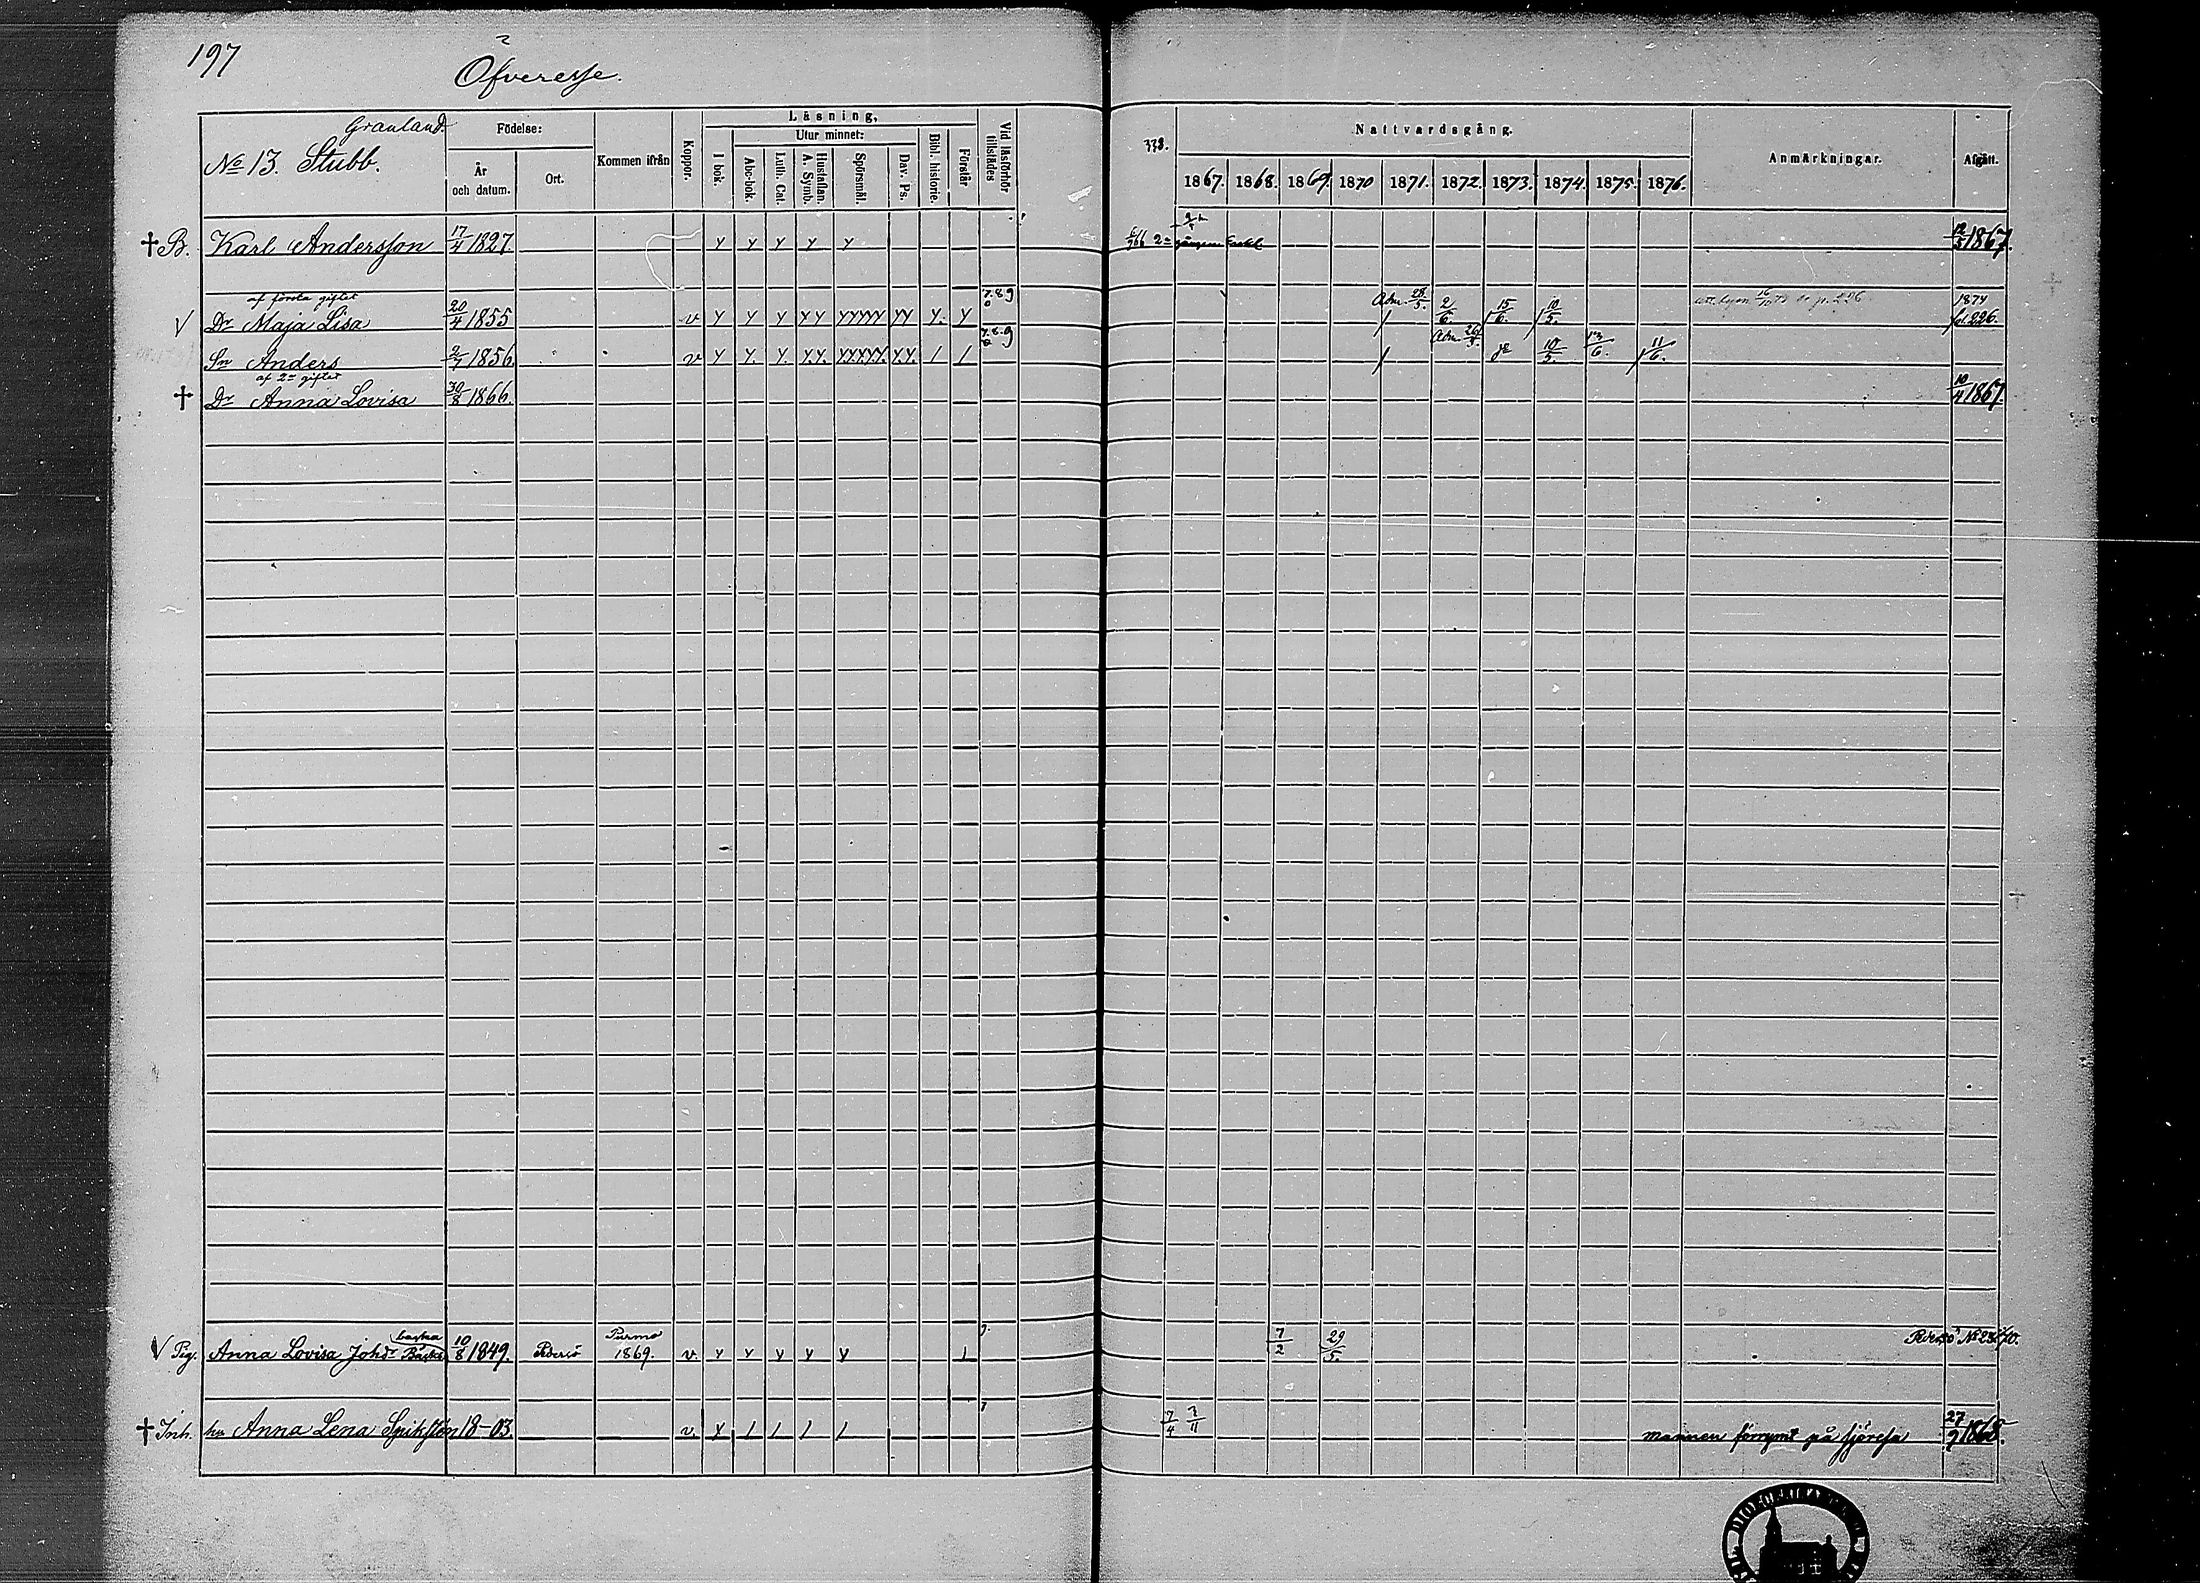 197
Öfveresse.
Granland.
No 13. Stubb.
Födelse:
År och datum.
Ort.
Kommen ifrån
Koppor.
Läsning,
I bok.
Utur minnet:
Abc-bok.
Luth. Cat.
Hustaflan. A. Symb.
Spörsmål.
Dav. Ps.
Bibl. historie.
Förstår
Vid läsförhör tillstädes
338.
Nattvardsgång.
1867. 1868. 1869. 1870 1871. 1872. 1873. 1874. 1875. 1876.
Anmärkningar.
Afgått.
† B. Karl Andersson 17/4 1827. y y y y y 2:a gången 12/5 1867.
af första giftet 7.8.9
V Dr Maja Lisa 20/4 1855 v y y y yy yyyyy yy y. y Adm. 28/5. 2/6. 15/6. 10/5. 1874 fol. 226.
7.8.9
Sn Anders 2/7 1856 v y y. y. y.y. yyyyy. y.y. / / Adm. 26/5. 10/5. 13/6. 11/6.
af 2:a giftet
† Dr Anna Lovisa 30/8 1866. 10/4 1867.
V Pig. Anna Lovisa Johdr Backa 10/8 1849. Pedersö Purmo 1869. v. y y y y y / 9. 7/2 29/5. Pedersö No 28/70.
† Inh. hu Anna Lena Spiksson 18-03. v. y / / / / 7 7/4 3/11 mannen förrymt på sjöresa 27/9 1868.